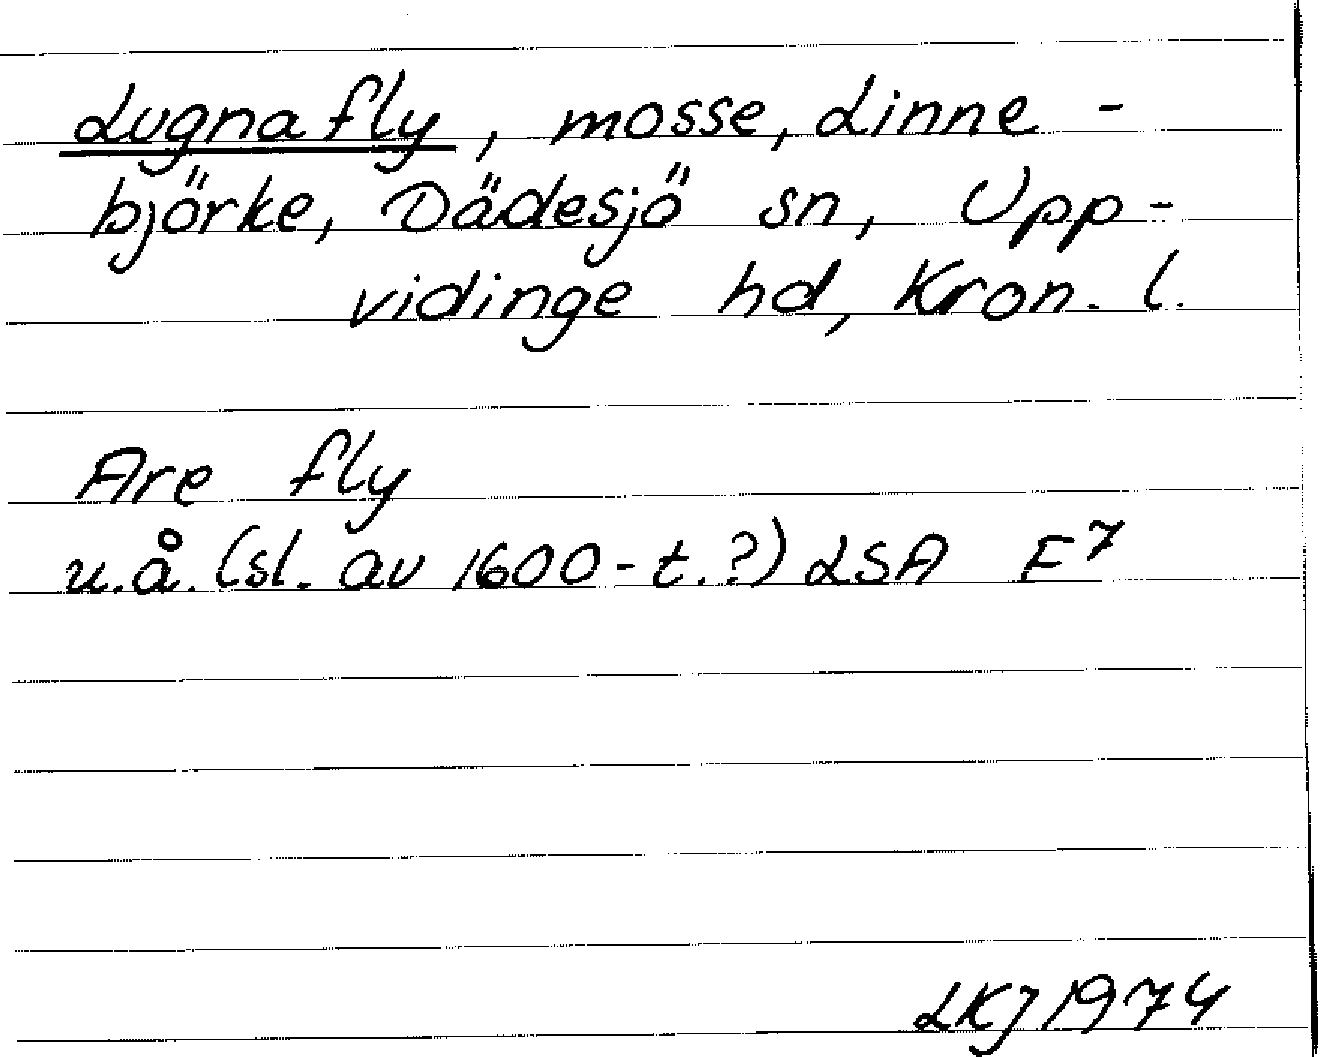 Lugnafly, mosse, Linne-
björke, Dädesjö sn, Upp-
vidinge hd, Kron. l.
Are fly
u.å. (sl. av 1600-t.?) LSA F7
LKJ 1974